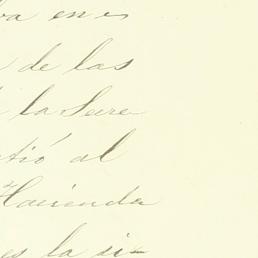 ba en es
de las
la Secre
tió al
Hacienda
es la si-